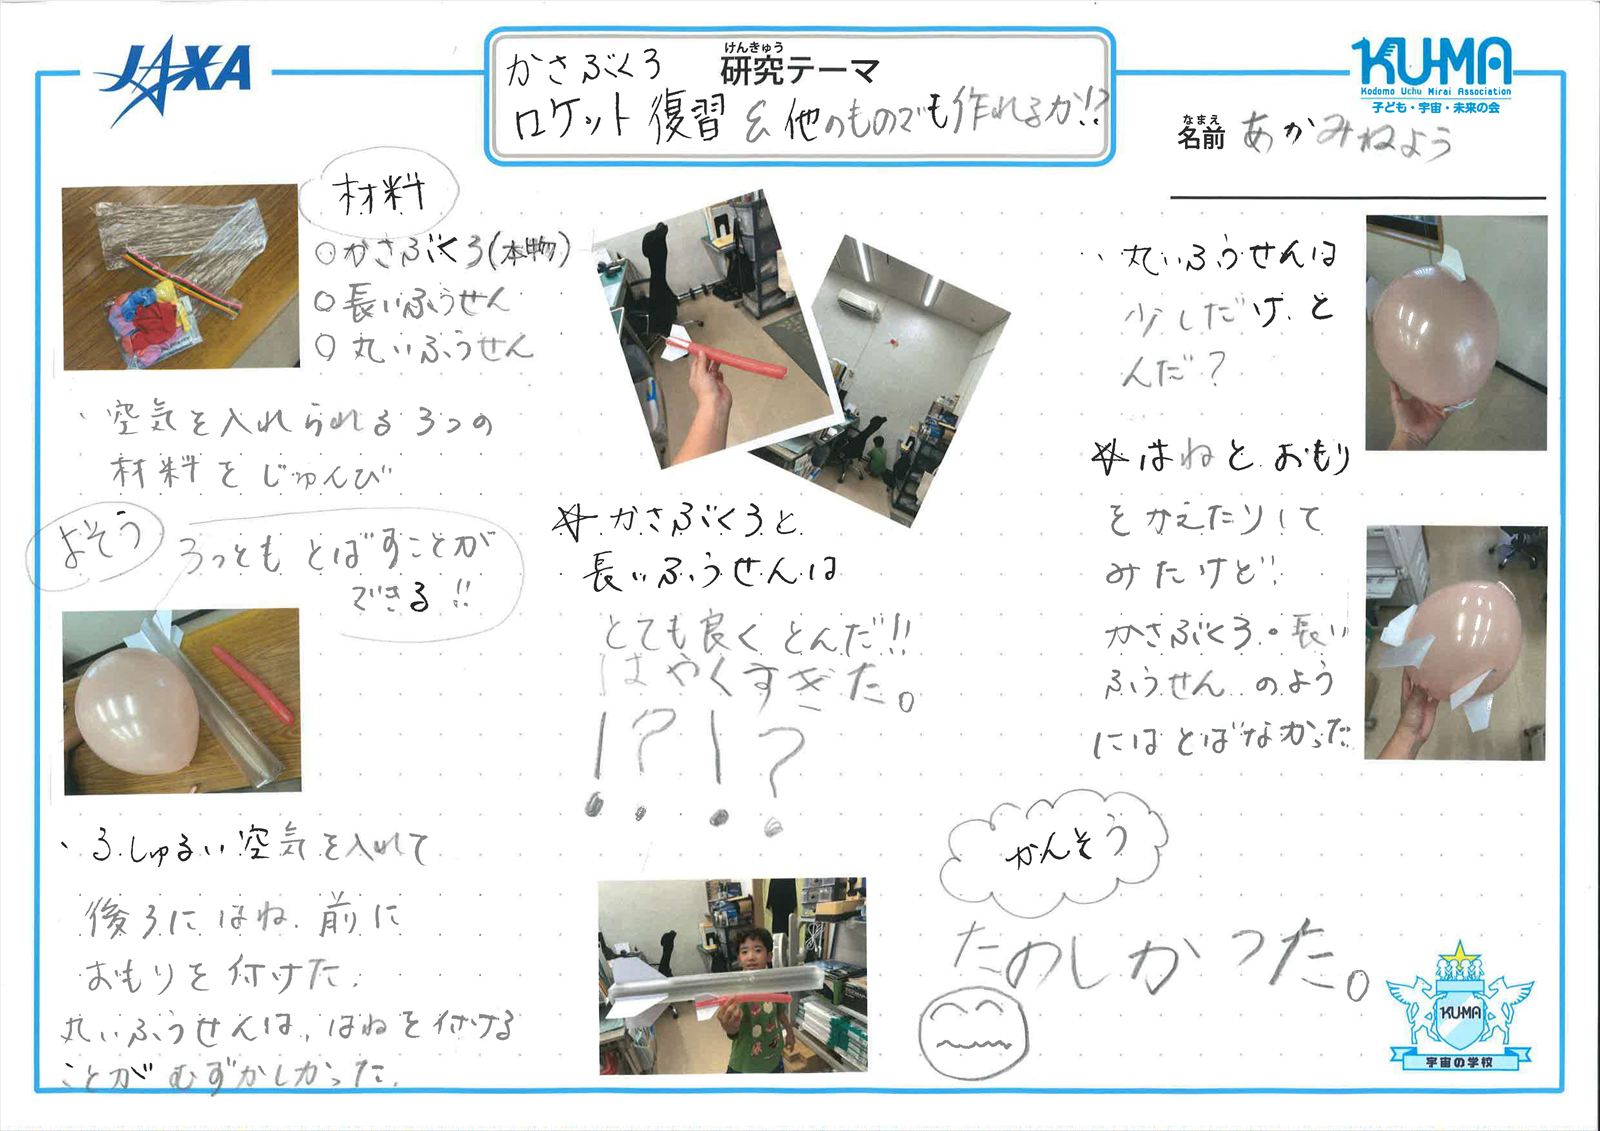 JAXA
けんきゅう
研究テーマ
かさぶくろ
ロケット復習 & 他のものでも作れるか!?
KU-MA
Kodomo Uchu Mirai Association
子ども・宇宙・未来の会
なまえ
名前 あかみねよう
材料
○かさぶくろ(本物)
○長いふうせん
○丸いふうせん
・空気を入れられる3つの
材料をじゅんび
よそう
3つとも とばすことが
できる!!
・3しゅるい空気を入れて
後ろにはね、前に
おもりを付けた。
丸いふうせんは、はねを付ける
ことがむずかしかった。
☆かさぶくろと
長いふうせんは
とても良くとんだ!!
はやくすぎた。
!?!?
・丸いふうせんは
少しだけ、と
んだ?
☆はねと、おもり
をかえたりして
みたけど、
かさぶくろ・長い
ふうせんのよう
にはとばなかった
かんそう
たのしかった。
KU-MA
宇宙の学校